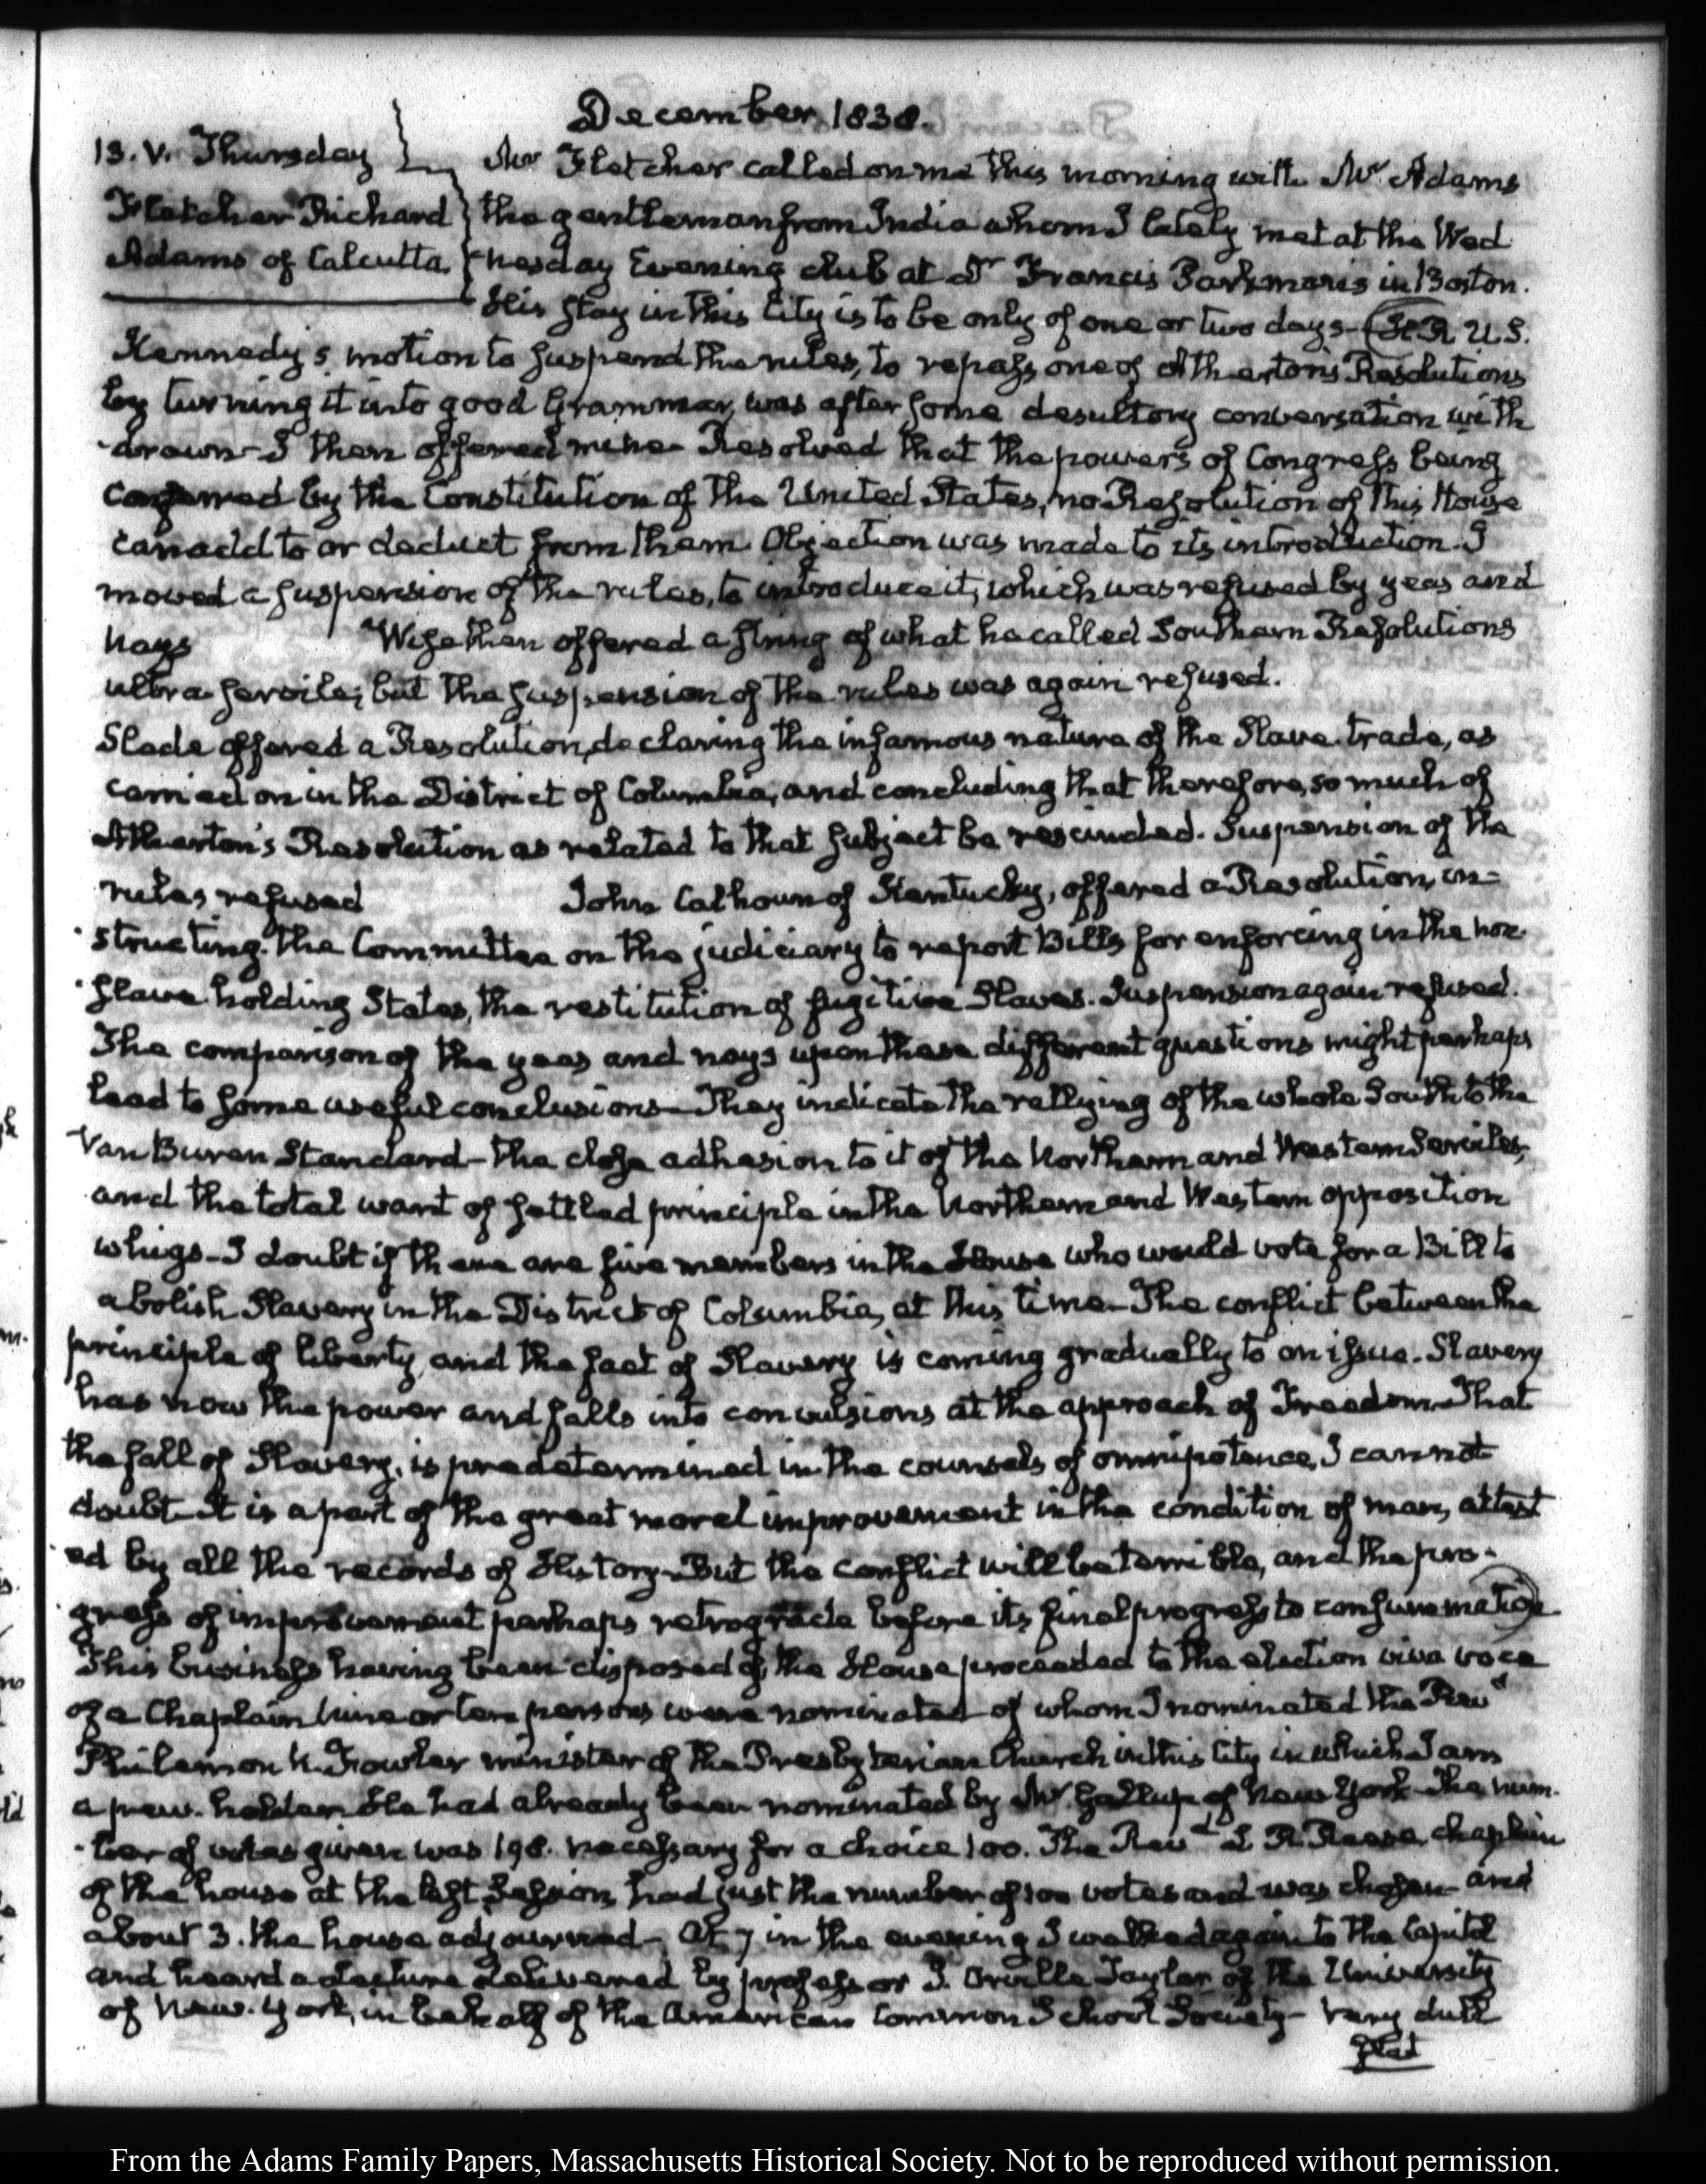 December 1838.
13. V. Thursday
Fletcher Richard
Adams of Calcutta.
Mr Fletcher called on me this morning with Mr Adams
the gentleman from India whom I lately met at the Wed
nesday Evening club at Dr Francis Parkman's in Boston.
His stay in this City is to be only of one or two days— H.R. U.S.
Kennedy's motion to suspend the rules, to repass one of Atherton's Resolutions
by turning it into good Grammar, was after some desultory conversation with
-drawn— I then offered mine— Resolved that the powers of Congress being
conferred by the Constitution of the United States, no Resolution of this House
can add to or deduct from them. Objection was made to its introduction. I
moved a suspension of the rules, to introduce it, which was refused by yeas and
nays Wise then offered a string of what he called Southern Resolutions
ultra-servile; but the suspension of the rules was again refused.
Slade offered a Resolution, declaring the infamous nature of the Slave-trade, as
carried on in the District of Columbia, and concluding that therefore, so much of
Atherton's Resolution as related to that subject be rescinded. Suspension of the
rules refused John Calhoun of Kentucky, offered a Resolution, in-
-structing the Committee on the judiciary to report Bills for enforcing in the non-
-slave-holding States, the restitution of fugitive Slaves. Suspension again refused.
The comparison of the yeas and nays upon these different questions might perhaps
lead to some useful conclusions— They indicate the rallying of the whole South to the
Van Buren Standard— the close adhesion to it of the Northern and Western Serviles,
and the total want of settled principle in the Northern and Western opposition
whigs— I doubt if there are five members in the House who would vote for a Bill to
abolish Slavery in the District of Columbia, at this time— The conflict between the
principle of liberty, and the fact of Slavery is coming gradually to an issue. Slavery
has now the power and falls into convulsions at the approach of Freedom— That
the fall of Slavery, is predetermined in the counsels of omnipotence, I cannot
doubt— It is a part of the great moral improvement in the condition of man, attest
-ed by all the records of History— But the conflict will be terrible, and the pro-
-gress of improvement perhaps retrograde before its final progress to consummation
This business having been disposed of, the House proceeded to the election viva voce
of a Chaplain Nine or ten persons were nominated of whom I nominated the Revd
Philemon H. Fowler minister of the Presbyterian Church in this City in which I am
a pew-holder. He had already been nominated by Mr Gallup of New York— The num-
-ber of votes given was 198. necessary for a choice 100. The Revd L. R. Reese, chaplain
of the house at the last Session, had just the number of 100 votes and was chosen— and
about 3. the house adjourned— At 7 in the evening I walked again to the Capitol
and heard a lecture delivered by professor J. Orville Taylor of the University
of New-York, in behalf of the American Common School Society— Very dull
flat
From the Adams Family Papers, Massachusetts Historical Society. Not to be reproduced without permission.